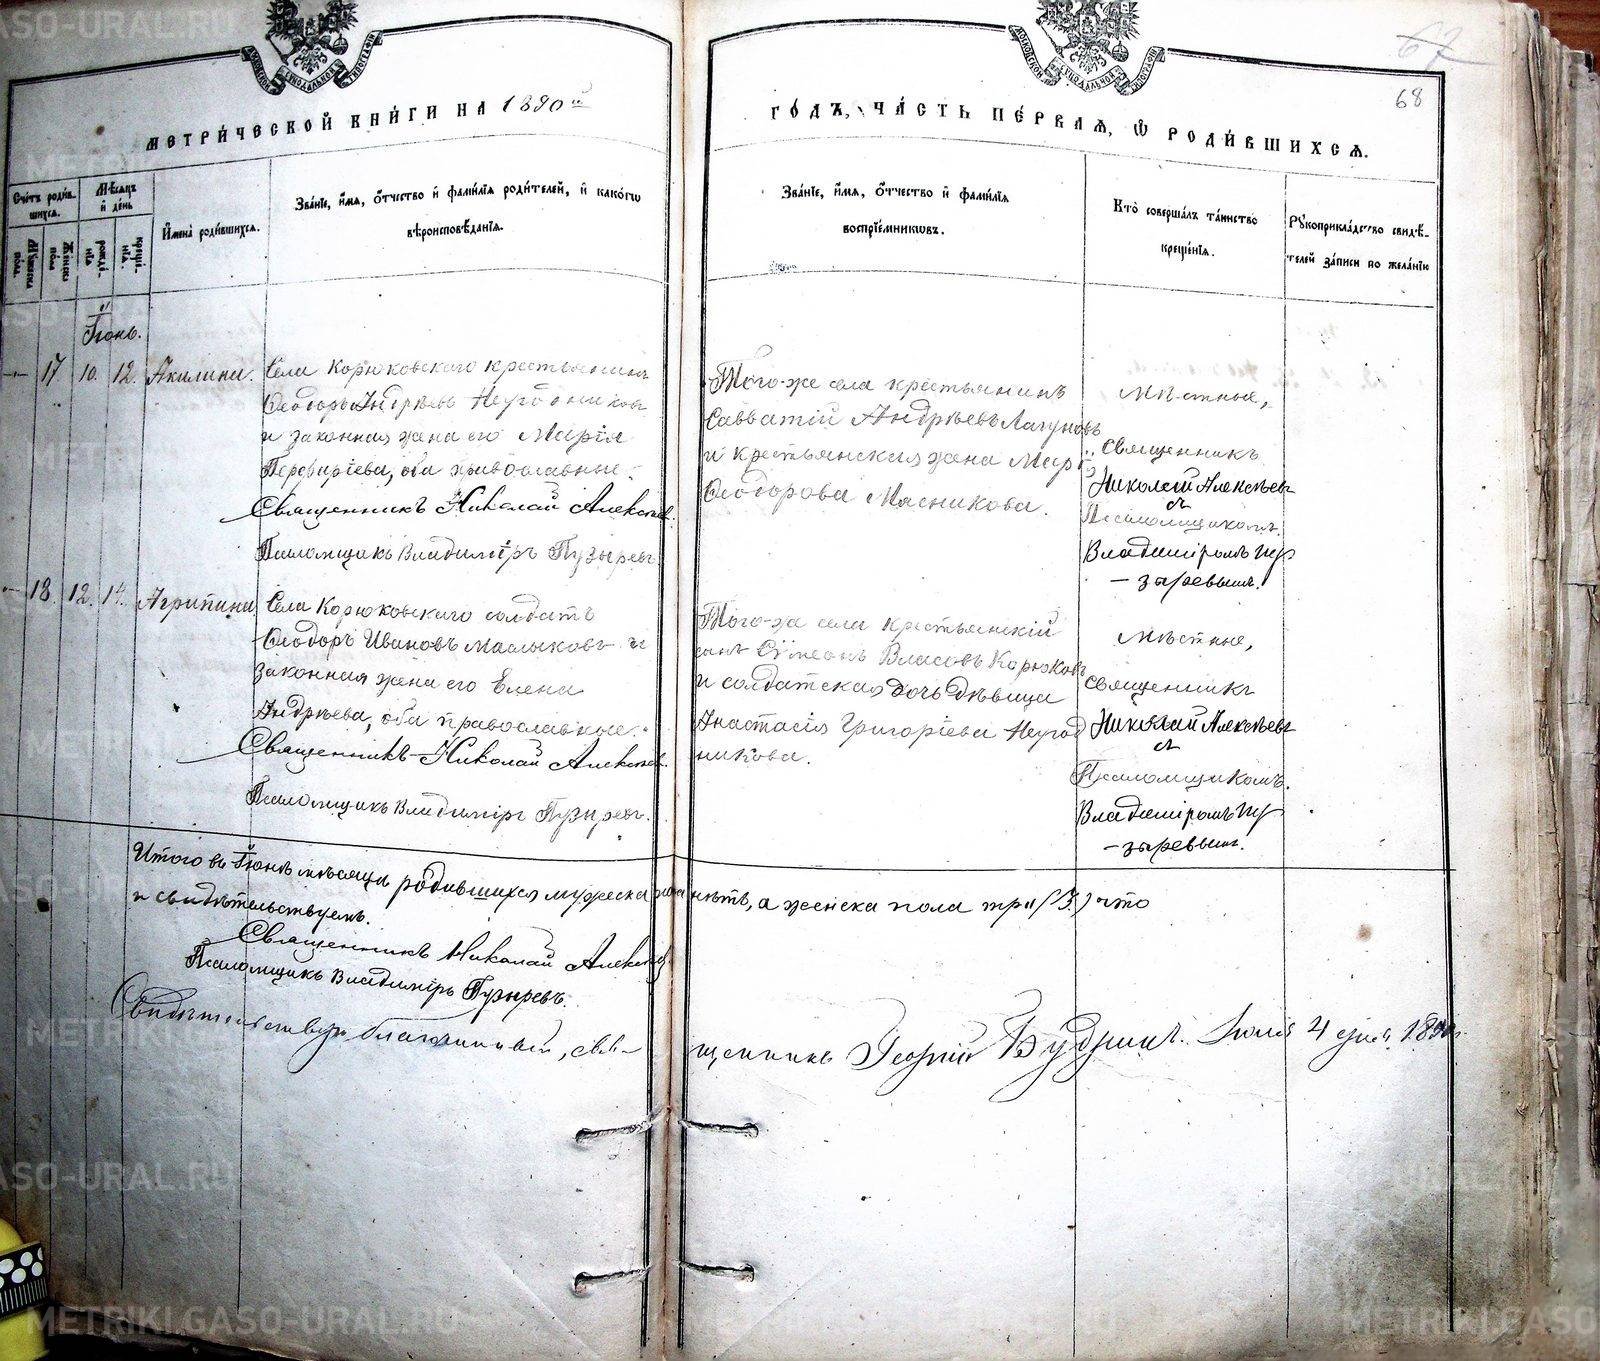 METRIKI.GASO-URAL.RU
МЕТРИ́ЧЕСКОЙ КНИ́ГИ НА 1890 й
ГО́ДЪ, ЧА́СТЬ ПЕ́РВАѦ, Ѡ҆ РОДИ́ВШИХСѦ.
67
68
Сче́тъ роди́в-
шихсѧ.
Мꙋ́жеска по́ла.
Же́нска по́ла
Мѣ́сѧцъ и҆ де́нь
рожде́нїѧ
креще́нїѧ.
И҆мена̀ роди́вшихсѧ.
Зва́нїе, и҆́мѧ, ѻ҆́тчество и҆ фами́лїѧ роди́телей, и҆ како́гѡ
вѣроисповѣ́данїѧ.
Зва́нїе, и҆́мѧ, ѻ҆́тчество и҆ фами́лїѧ
воспрїе́мниковъ.
Кто̀ соверша́лъ та́инство
креще́нїѧ.
Рꙋкоприкла́дство свидѣ́-
телей за́писи по жела́нїю
Іюнь.
17. 10. 12. Акилина.
Села Корюковскаго крестьянинъ
Ѳеодоръ Андрѣевъ Негодниковъ
и законная жена его Марія
Перфиріева, оба православные.
Священникъ Николай Алексѣев
Псаломщикъ Владиміръ Пузыревъ
Того-же села крестьянинъ
Савватій Андрѣевъ Лагуновъ
и крестьянская жена Марѳ
Ѳеодорова Мясникова.
Мѣстные,
Священникъ
Николай Алексѣевъ
съ
Псаломщикомъ
Владиміромъ Пу-
-зыревымъ.
18. 12. 14. Агрипина
Села Корюковскаго солдатъ
Ѳеодоръ Ивановъ Маслыковъ и
законная жена его Елена
Андрѣева, оба православные.
Священникъ Николай Алексѣев
Псаломщикъ Владиміръ Пузыревъ.
Того-же села крестьянскій
сынъ Сѵмеонъ Власовъ Корюковъ
и солдатская дочь дѣвица
Анастасія Григоріева Негод
никова.
Мѣстные,
священникъ
Николай Алексѣевъ
съ
Псаломщикомъ
Владиміромъ Пу-
-зыревымъ.
Итого въ Іюнѣ мѣсяцѣ родившихся мужеска пола нѣтъ, а женска пола три (3) что
и свидѣтельствуемъ.
Священникъ Николай Алексѣев
Псаломщикъ Владиміръ Пузыревъ.
Свидѣтельствую благочинный, свя-
щенникъ Георгій Будринъ. Іюля 4 дня 1890 г.